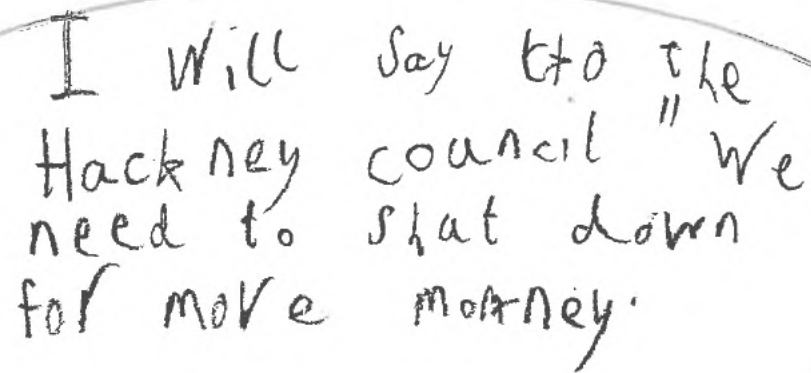 I will say to the
Hackney council "We
need to shut down
for more monney.